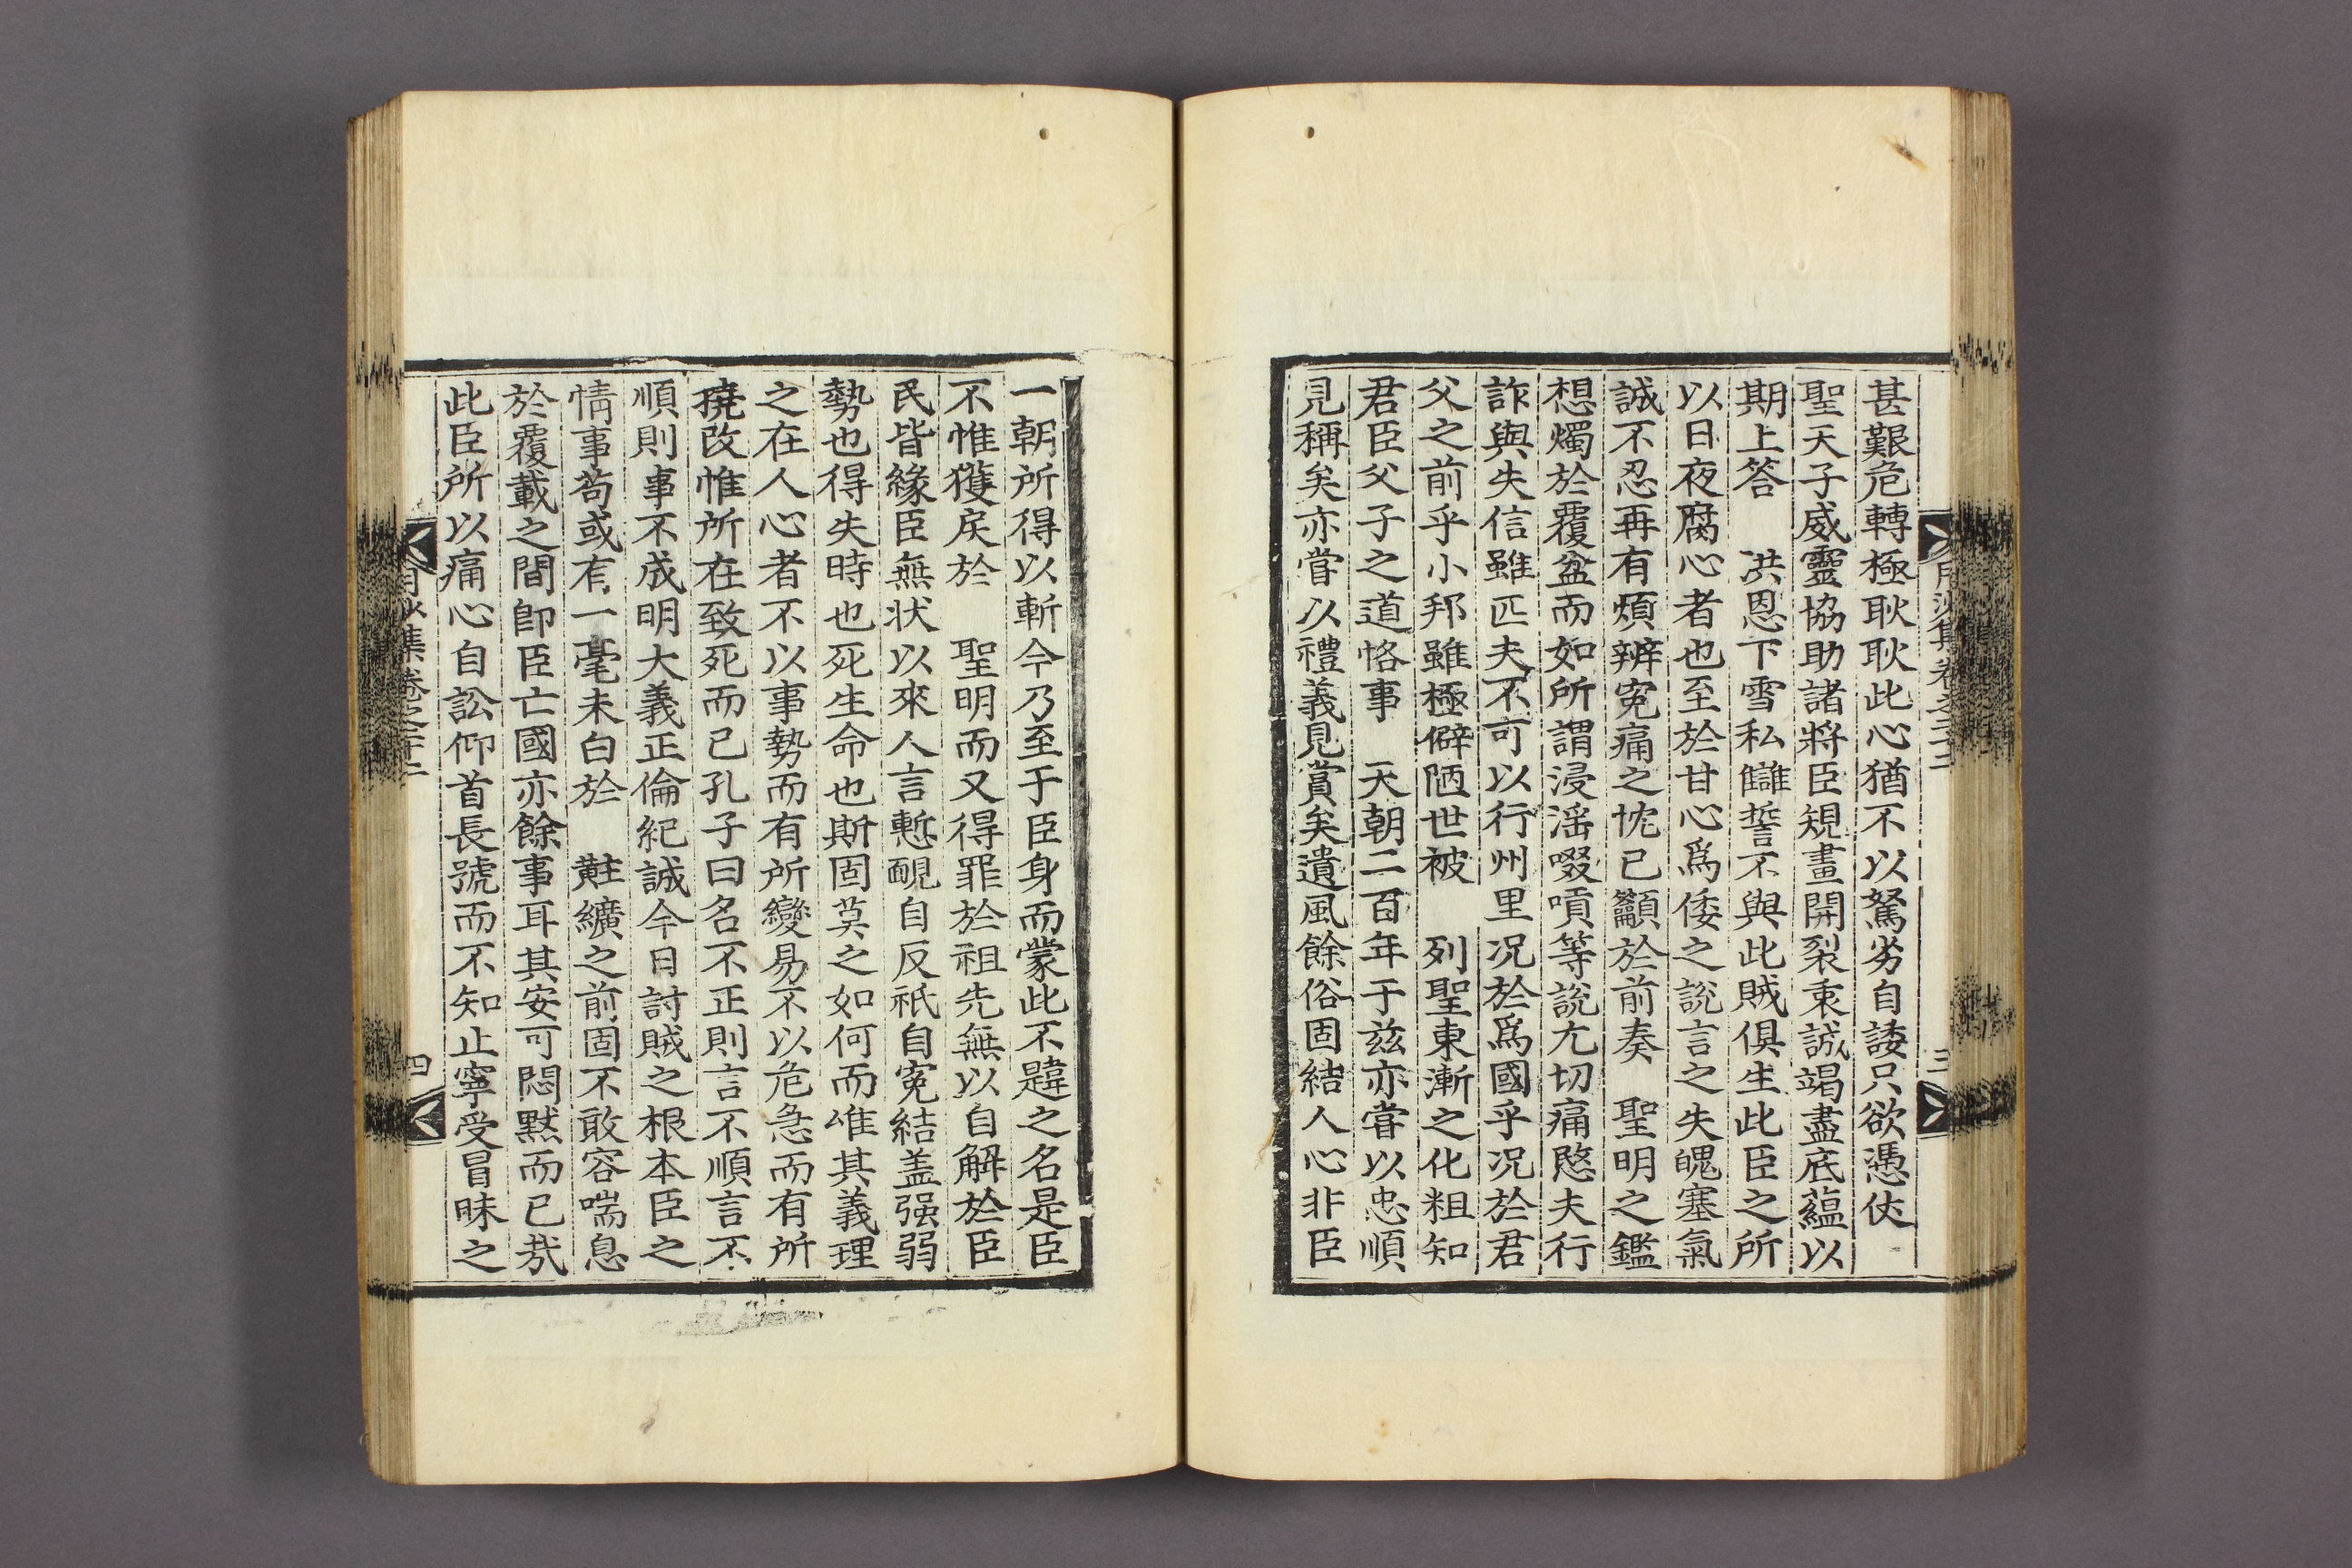 甚艱危轉極耿耿此心猶不以駑劣自諉只欲憑仗
聖天子威靈協助諸將臣規畫開裂衷誠竭盡底蘊以
期上答　洪恩下雪私讎誓不與此賊俱生此臣之所
以日夜腐心者也至於甘心爲倭之說言之失魄塞氣
誠不忍再有煩辨寃痛之忱已籲於前奏　聖明之鑑
想燭於覆盆而如所謂浸淫啜嘳等說尤切痛愍夫行
詐與失信雖匹夫不可以行州里况於爲國乎况於君
父之前乎小邦雖極僻陋世被　列聖東漸之化粗知
君臣父子之道恪事　天朝二百年于兹亦嘗以忠順
見稱矣亦嘗以禮義見賞矣遺風餘俗固結人心非臣
月沙集卷之二十二
三
一朝所得以斬今乃至于臣身而蒙此不韙之名是臣
不惟獲戾於　聖明而又得罪於祖先無以自解於臣
民皆緣臣無状以來人言慙靦自反祇自寃結盖强弱
勢也得失時也死生命也斯固莫之如何而唯其義理
之在人心者不以事勢而有所變易不以危急而有所
撓改惟所在致死而已孔子曰名不正則言不順言不
順則事不成明大義正倫紀誠今日討賊之根本臣之
情事苟或有一毫未白於　黈纊之前固不敢容喘息
於覆載之間卽臣亡國亦餘事耳其安可悶默而已㢤
此臣所以痛心自訟仰首長號而不知止寧受冒昧之
月沙集卷之二十二
四